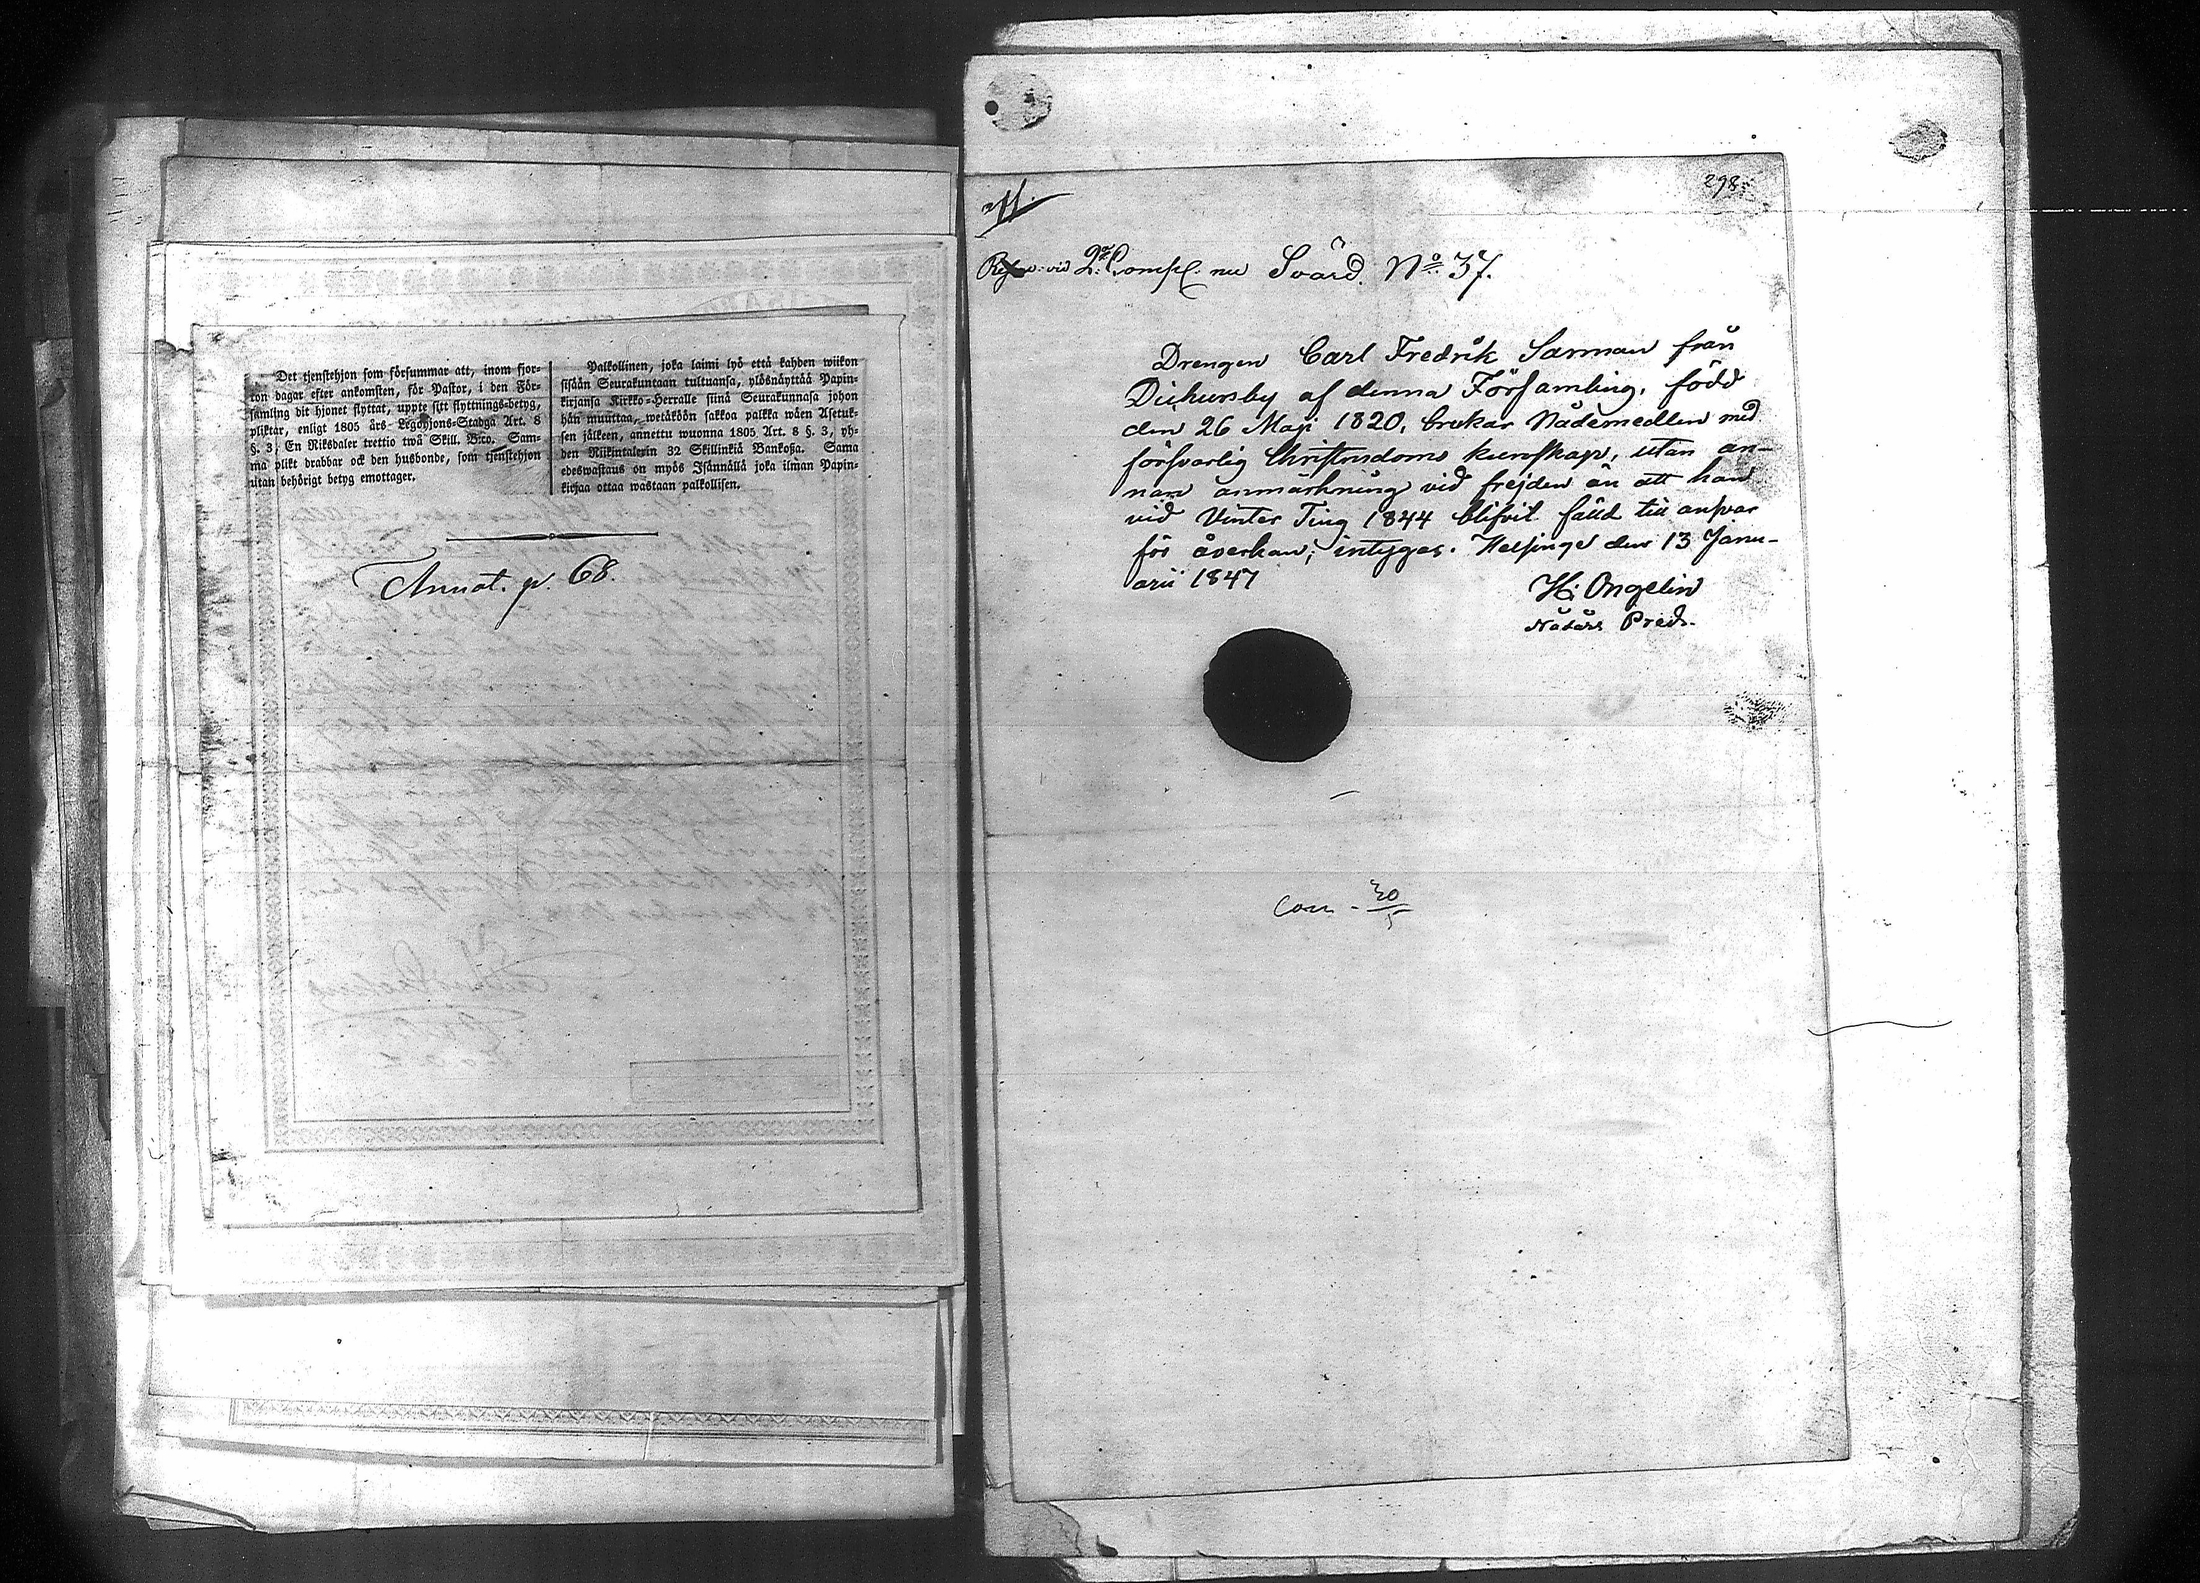 Det tjenstehjon som försummar att, inom fjor-
ton dagar efter ankomsten, för Pastor, i den För-
samling dit hjonet flyttat, uppte sitt flyttnings-betyg,
pliktar, enligt 1805 års Legohjons-Stadga Art. 8
§. 3, En Riksdaler trettio twå Skill. B:co. Sam-
ma plikt drabbar ock den husbonde, som tjenstehjon
utan behörigt betyg emottager.
Palkollinen, joka laimi lyö että kahden wiikon
sisään Seurakuntaan tultuansa, ylösnäyttää Papin-
kirjansa Kirkko-Herralle siinä Seurakunnasa johon
hän muuttaa, wetäköön sakkoa palkka wäen Asetuk-
sen jälkeen, annettu wuonna 1805 Art. 8 §. 3, yh-
den Riikintalerin 32 Skillinkiä Bankosa. Sama
edeswastaus on myös Isännällä joka ilman Papin-
kirjaa ottaa wastaan palkollisen.
Annot. p. 68.
298
vid 2:a Comp. nu Svärd. No 37.
Drengen Carl Fredrik Sarman från
Dickursby af denna Församling, född
den 26 Maji 1820, brukar Nådemedlen med
försvarlig Christendoms kunskap, utan an-
nan anmärkning vid frejden än att han
vid Vinter Ting 1844 blifvit fälld till ansvar
för åverkan; intygas. Helsinge den 13 Janu-
arii 1847
H: Ongelin
Nådårs Pred.
30
5